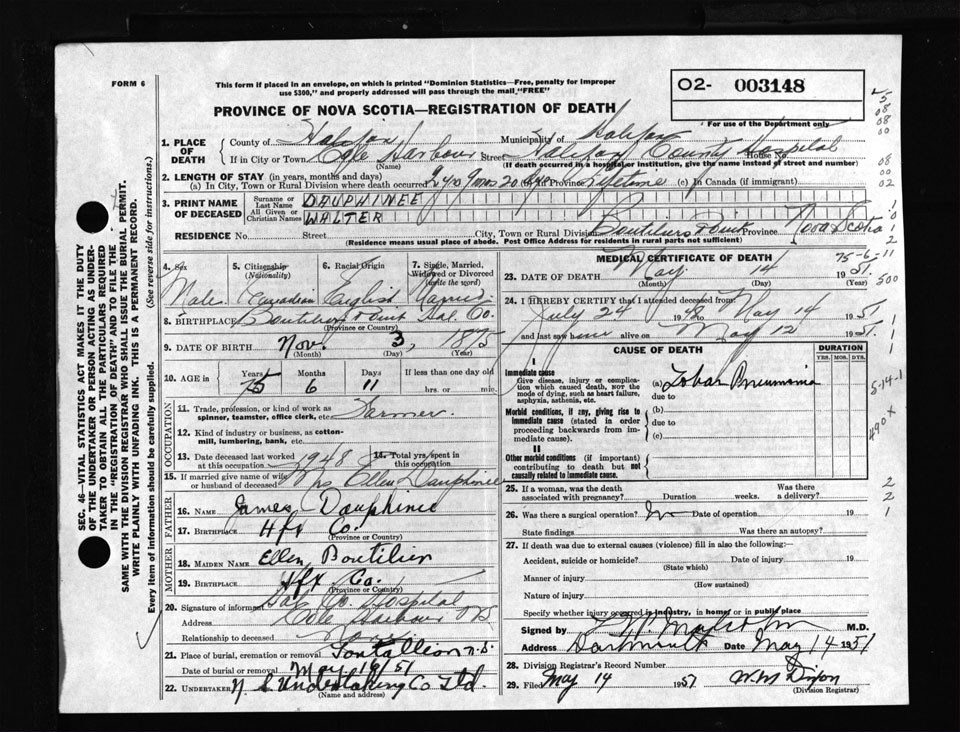 FORM 6
This form if placed in an envelope, on which is printed "Dominion Statistics—Free, penalty for improper
use $300," and properly addressed will pass through the mail, "FREE"
PROVINCE OF NOVA SCOTIA—REGISTRATION OF DEATH
O2- 003148
For use of the Department only
1. PLACE OF DEATH County of Halifax Municipality of Halifax
If in City or Town Cole Harbour Street Halifax County Hospital House No.
(Name) (If death occurred in a hospital or institution, give the name instead of street and number)
2. LENGTH OF STAY (in years, months and days)
(a) In City, Town or Rural Division where death occurred 2 yrs 9 mos 20 dys (b) In Province Lifetime (c) In Canada (if immigrant)
3. PRINT NAME OF DECEASED
Surname or Last Name DAUPHINEE
All Given or Christian Names WALTER
RESIDENCE No. Street City, Town or Rural Division Boutiliers Point Province Nova Scotia
(Residence means usual place of abode. Post Office Address for residents in rural parts not sufficient)
4. Sex 5. Citizenship (Nationality) 6. Racial Origin 7. Single, Married, Widowed or Divorced (write the word)
Male Canadian English
8. BIRTHPLACE Boutiliers Point Hal. Co.
(Province or Country)
9. DATE OF BIRTH Nov. 3, 1875
(Month) (Day) (Year)
10. AGE in Years Months Days If less than one day old
75 6 11 hrs. or min.
OCCUPATION
11. Trade, profession, or kind of work as spinner, teamster, office clerk, etc. Farmer.
12. Kind of industry or business, as cotton-mill, lumbering, bank, etc.
13. Date deceased last worked at this occupation 1948 14. Total yrs. spent in this occupation
15. If married give name of wife or husband of deceased Mrs Ellen Dauphinee
FATHER
16. Name James Dauphinee
17. Birthplace Hfx Co.
(Province or Country)
MOTHER
18. Maiden Name Ellen Boutilier
19. Birthplace Hfx Co.
(Province or Country)
20. Signature of informant Hal. Co. Hospital
Address Cole Harbour NS
Relationship to deceased
21. Place of burial, cremation or removal N.S.
Date of burial or removal May 19/51
22. UNDERTAKER N. S. Undertaking Co Ltd.
(Name and address)
MEDICAL CERTIFICATE OF DEATH
75-6-11
23. DATE OF DEATH May 14 1951.
(Month) (Day) (Year)
24. I HEREBY CERTIFY that I attended deceased from:
July 24 1948 to May 14 1951
and last saw him alive on May 12 1951.
CAUSE OF DEATH DURATION
YRS. MOS. DYS.
I
Immediate cause
Give disease, injury or complication which caused death, NOT the mode of dying, such as heart failure, asphyxia, asthenia, etc.
(a) Lobar Pneumonia
due to
Morbid conditions, if any, giving rise to immediate cause (stated in order proceeding backwards from immediate cause).
(b)
due to
(c)
II
Other morbid conditions (if important) contributing to death but not causally related to immediate cause.
25. If a woman, was the death associated with pregnancy? Duration weeks. Was there a delivery?
26. Was there a surgical operation? No Date of operation 19
State findings Was there an autopsy?
27. If death was due to external causes (violence) fill in also the following:—
Accident, suicide or homicide? Date of injury 19
(State which)
Manner of injury
(How sustained)
Nature of injury
Specify whether injury occurred in industry, in home, or in public place
Signed by Malcolm M.D.
Address Dartmouth Date May 14 1951
28. Division Registrar's Record Number
29. Filed May 14 1951 W.M. Dixon
(Division Registrar)
SEC. 46—VITAL STATISTICS ACT MAKES IT THE DUTY
OF THE UNDERTAKER OR PERSON ACTING AS UNDER-
TAKER TO OBTAIN ALL THE PARTICULARS REQUIRED
IN THE "REGISTRATION OF DEATH" AND TO FILE THE
SAME WITH THE DIVISION REGISTRAR WHO SHALL ISSUE THE BURIAL PERMIT.
WRITE PLAINLY WITH UNFADING INK. THIS IS A PERMANENT RECORD.
Every item of information should be carefully supplied. (See reverse side for instructions.)
5
08
08
00
08
00
02
1
0
1
2
500
1
1
1
5-14-1
490 x
2
2
1